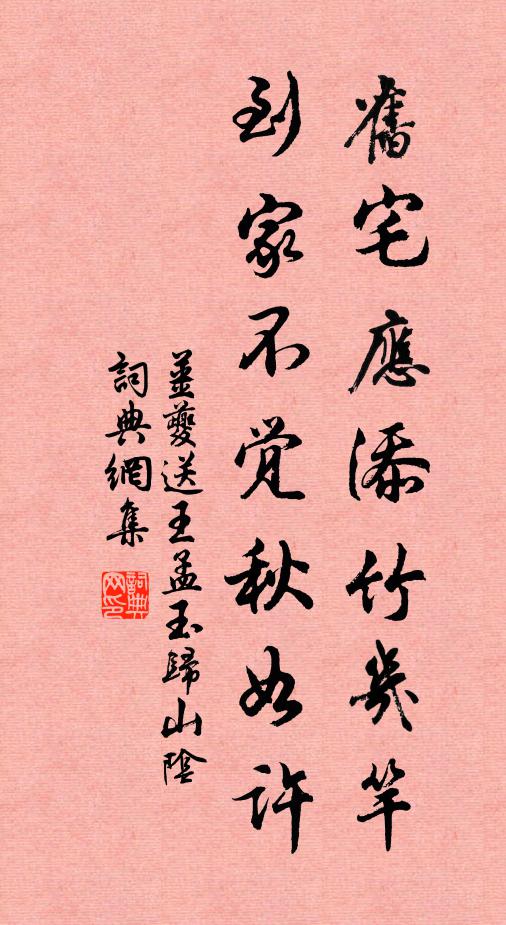 舊宅應添竹幾竿
到家不覺秋如許
姜夔送王孟玉歸山陰
詞典網集
詞典网印